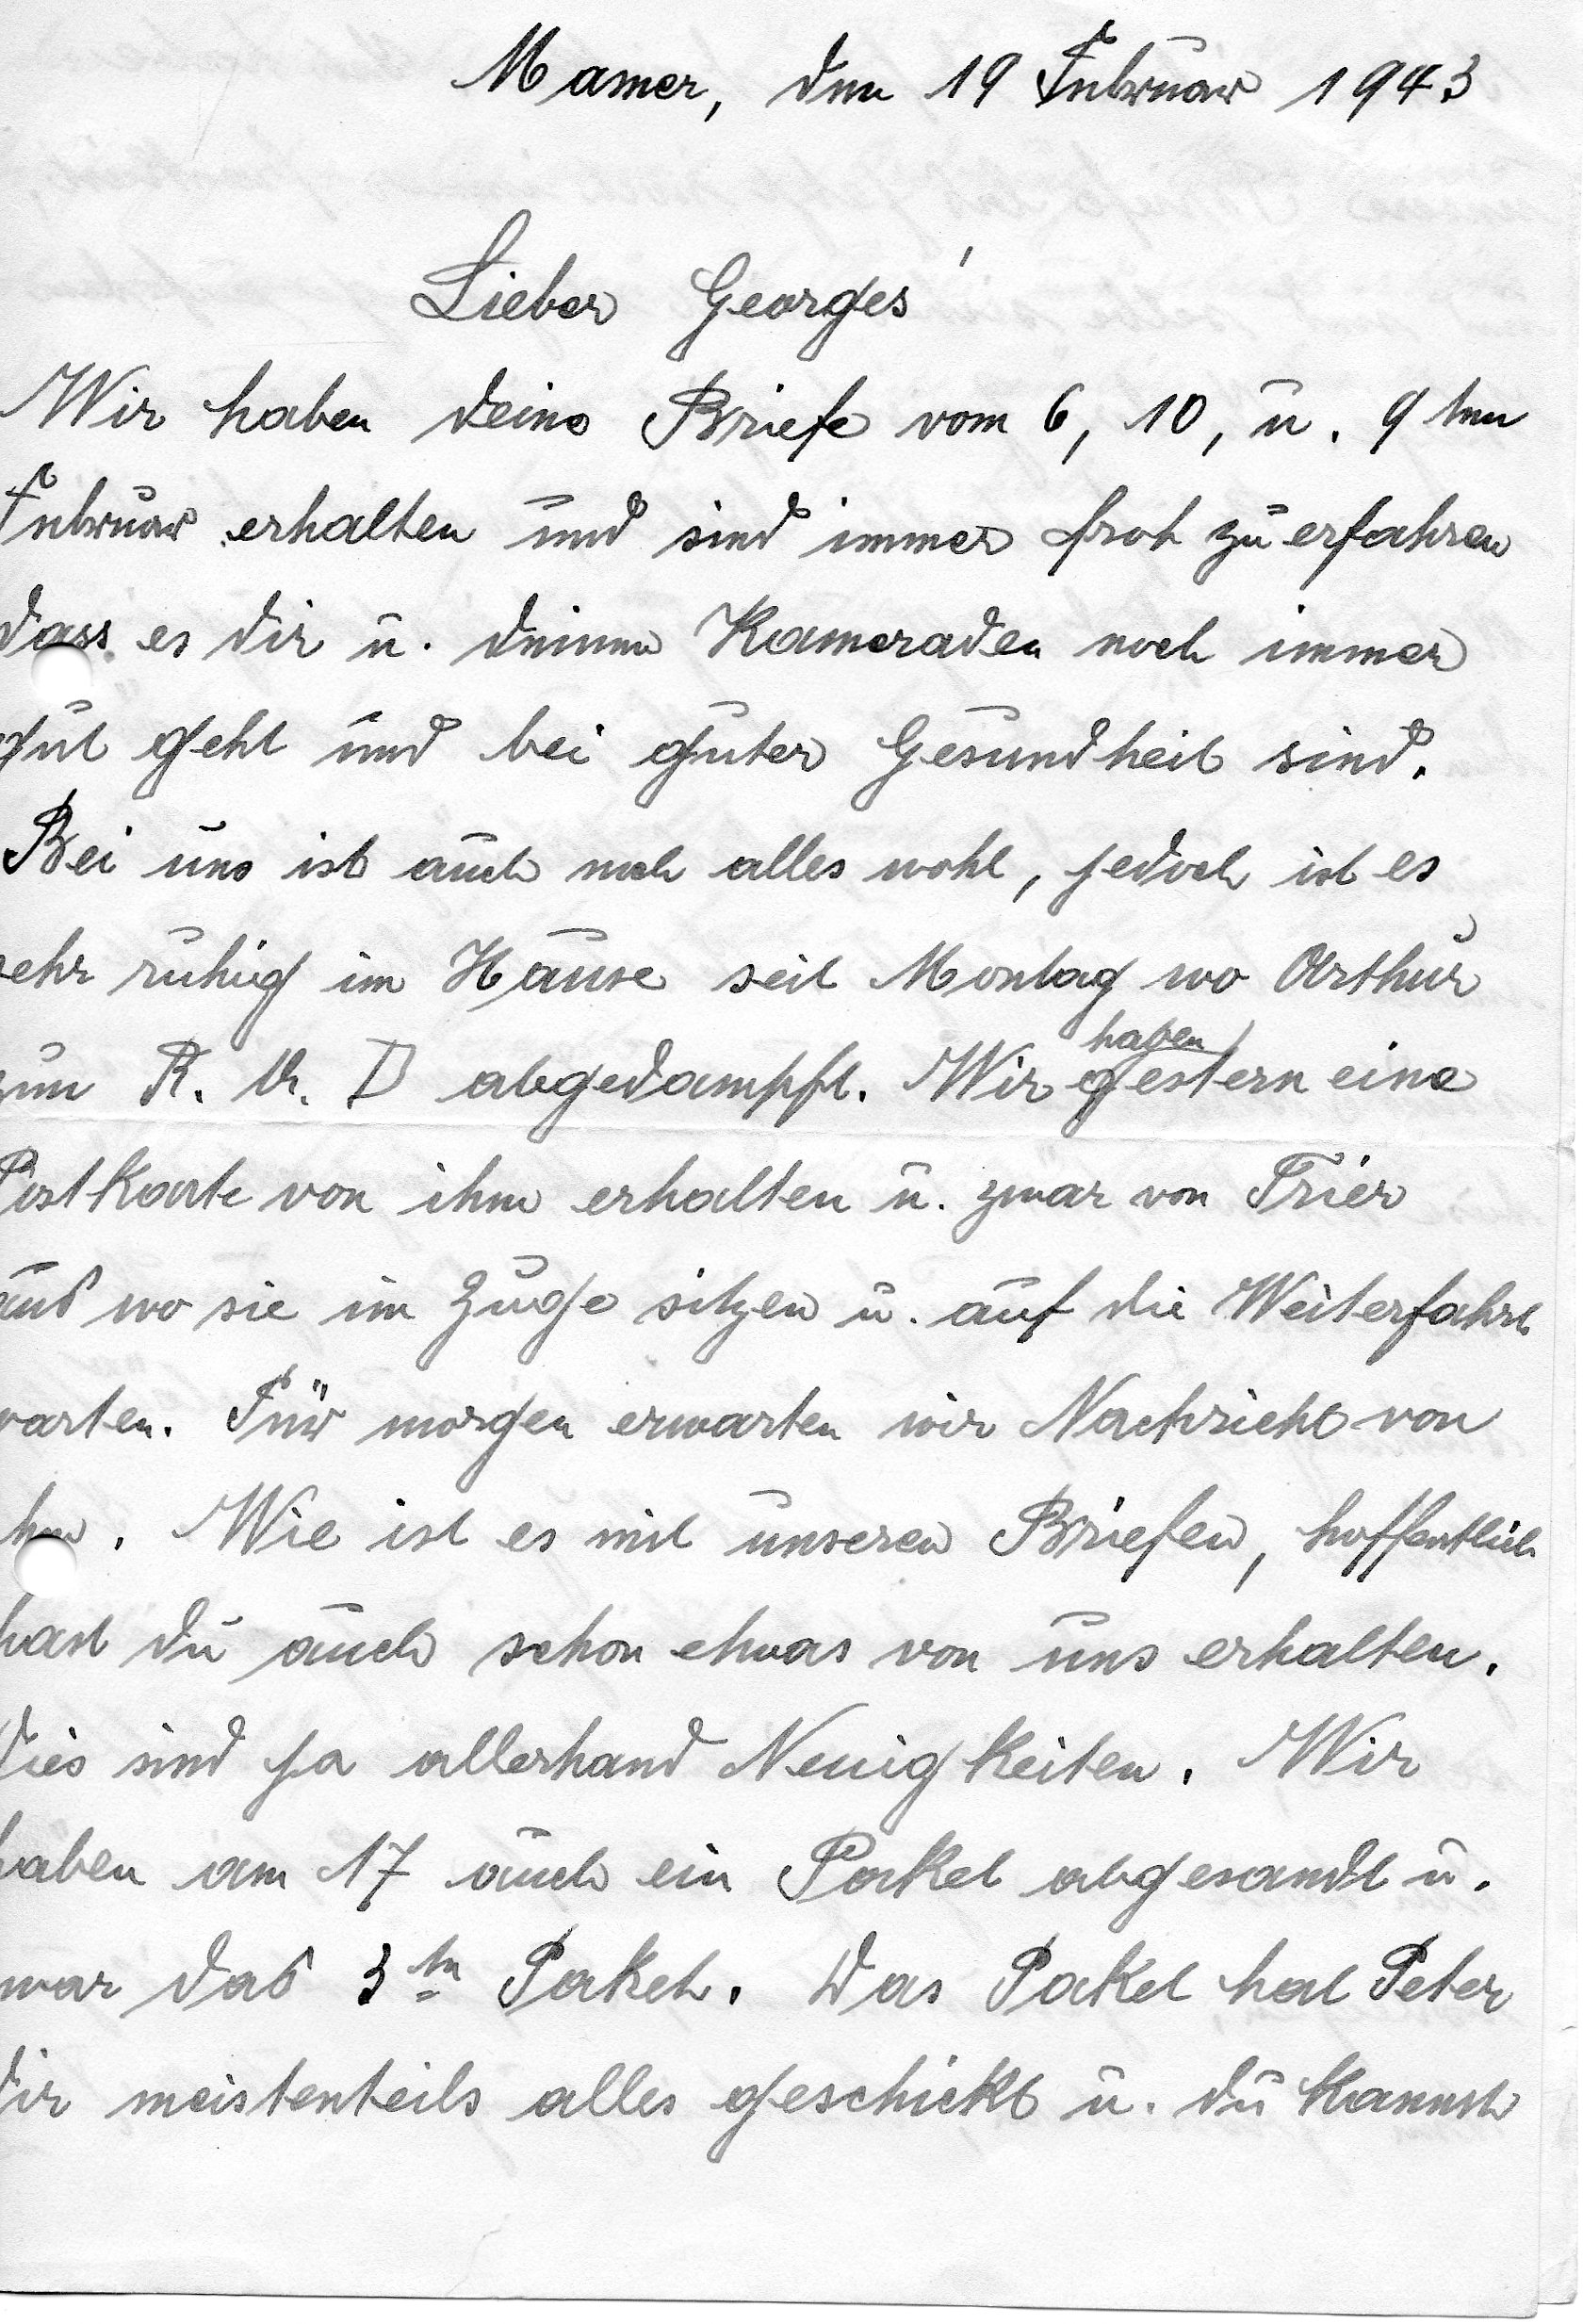 Mamer, den 19 Februar 1943
Lieber Georges!
Wir haben deine Briefe vom 6, 10, u. 9 ten
Februar erhalten und sind immer froh zu erfahren
dass es dir u. deinen Kameraden noch immer
gut geht und bei guter Gesundheit sind.
Bei uns ist auch noch alles wohl, jedoch ist es
sehr ruhig im Hause seit Montag wo Arthur
zum R. A. D abgedampft. Wir haben gestern eine
Postkarte von ihm erhalten u. zwar von Trier
aus wo sie im Zuge sitzen u. auf die Weiterfahrt
warten. Für morgen erwarten wir Nachricht von
ihm. Wie ist es mit unseren Briefen, hoffentlich
hast du auch schon etwas von uns erhalten.
Dies sind ja allerhand Neuigkeiten. Wir
haben am 17 auch ein Paket abgesandt u.
war das 3te Paket. Das Paket hat Peter
dir meistenteils alles geschickt u. du kannst